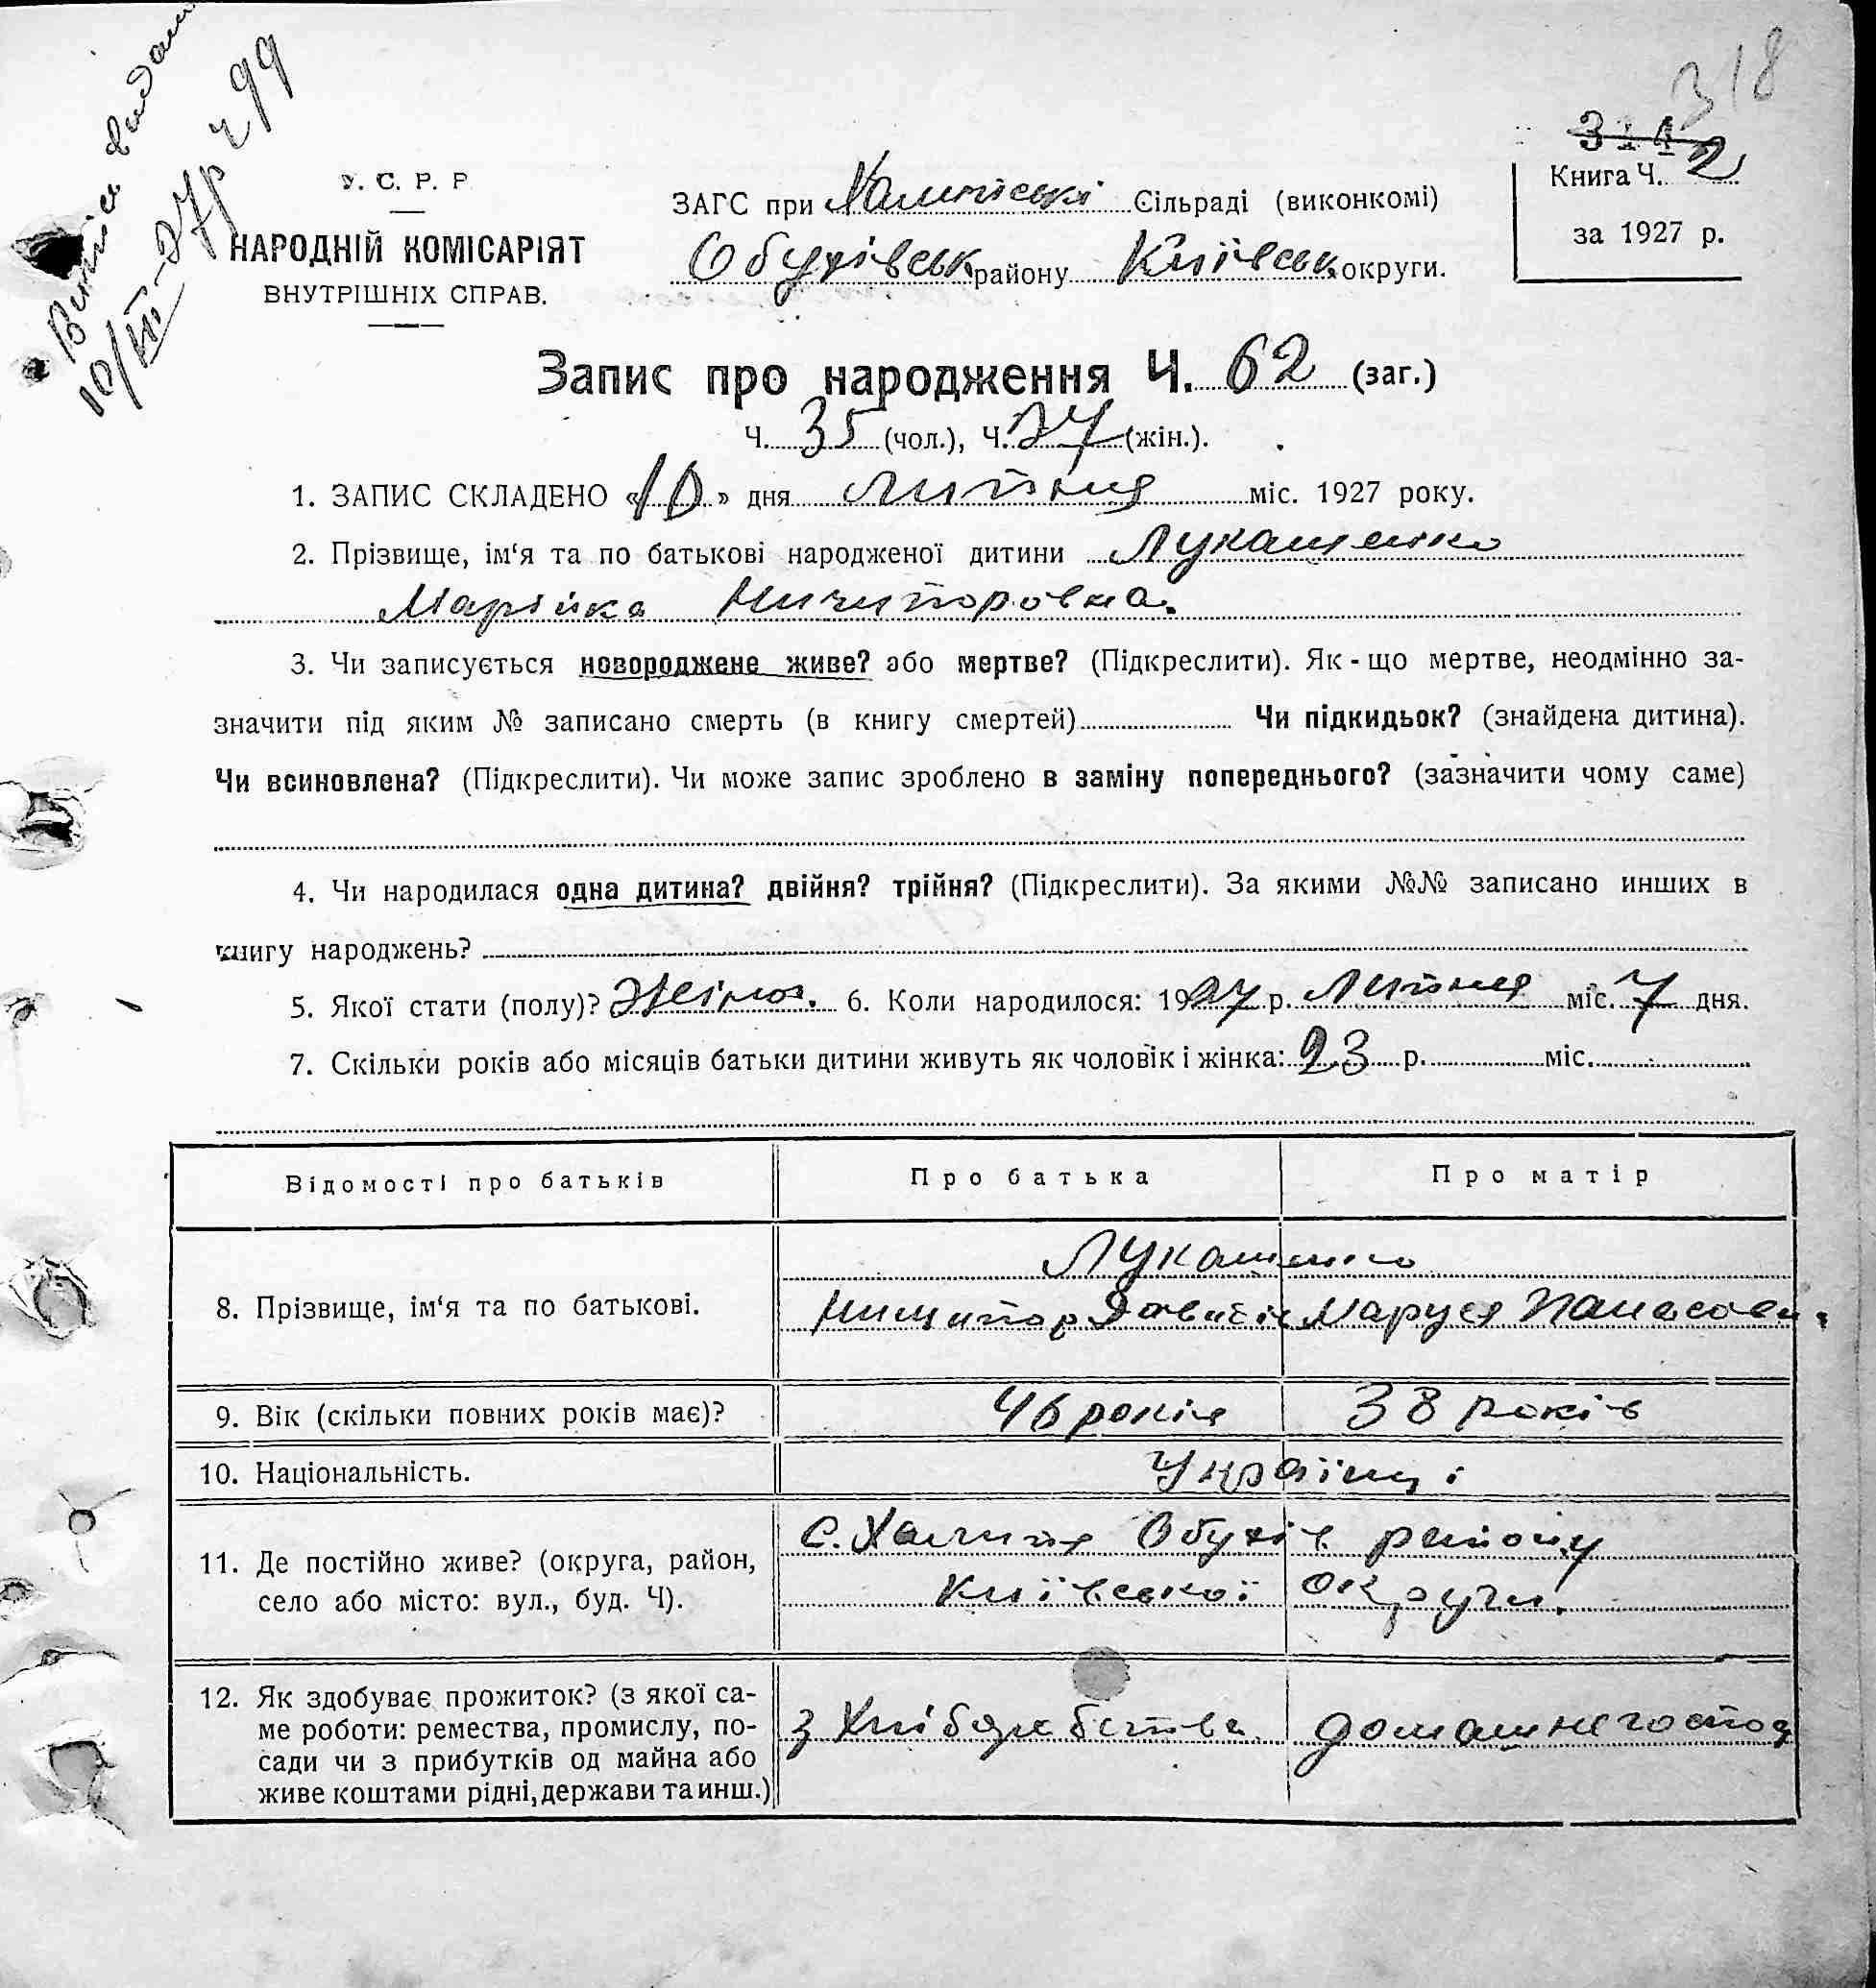 318
314
Витяг видано
10/VII-27р ч 99
У. С. Р. Р.
НАРОДНІЙ КОМІСАРІЯТ
ВНУТРІШНІХ СПРАВ.
ЗАГС при Халепській Сільраді (виконкомі)
Обухівськ району Київськ округи.
Книга Ч. 2
за 1927 р.
Запис про народження Ч. 62 (заг.)
Ч. 35 (чол.), Ч. 27 (жін.).
1. ЗАПИС СКЛАДЕНО «10» дня Липня міс. 1927 року.
2. Прізвище, ім‘я та по батькові народженої дитини Лукашенко
Марійка Ничипоровна.
3. Чи записується новороджене живе? або мертве? (Підкреслити). Як-що мертве, неодмінно за-
значити під яким № записано смерть (в книгу смертей) Чи підкидьок? (знайдена дитина).
Чи всиновлена? (Підкреслити). Чи може запис зроблено в заміну попереднього? (зазначити чому саме)
4. Чи народилася одна дитина? двійня? трійня? (Підкреслити). За якими №№ записано инших в
книгу народжень?
5. Якої стати (полу)? Жіноч. 6. Коли народилося: 1927 р. Липня міс. 7 дня.
7. Скільки років або місяців батьки дитини живуть як чоловік і жінка: 23 р. міс.
Відомості про батьків Про батька Про матір
8. Прізвище, ім‘я та по батькові. Лукашенко
Ничипор Давидів Маруся Панасовн.
9. Вік (скільки повних років має)? 46 років 38 років
10. Національність. Українці
11. Де постійно живе? (округа, район,
село або місто: вул., буд. Ч).
с. Халепя Обухів. району
Київської округи.
12. Як здобуває прожиток? (з якої са-
ме роботи: ремества, промислу, по-
сади чи з прибутків од майна або
живе коштами рідні, держави та инш.)
з Хліборобства домашнє господ